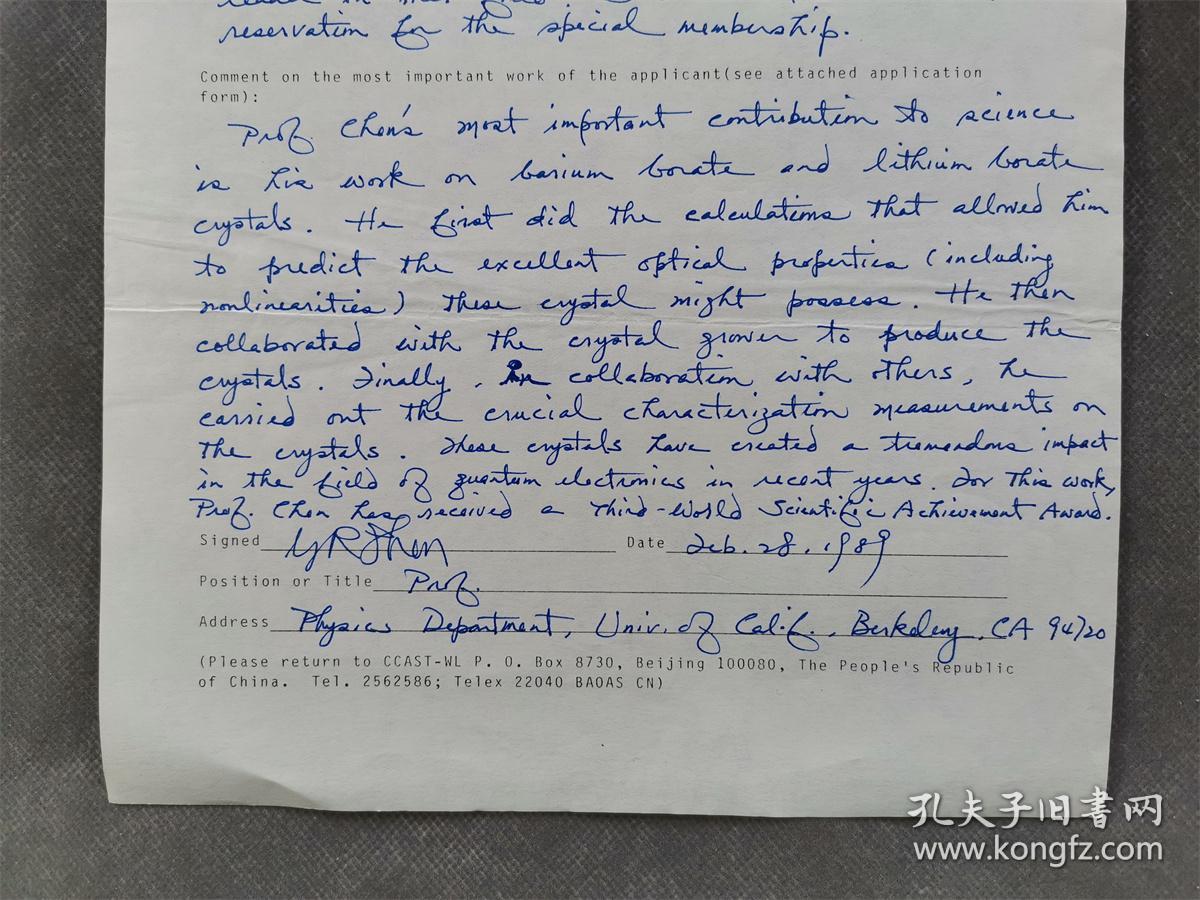 reservation for the special membership.
Comment on the most important work of the applicant(see attached application
form):
Prof. Chen's most important contribution to science
is his work on barium borate and lithium borate
crystals. He first did the calculations that allowed him
to predict the excellent optical properties (including
nonlinearities) these crystal might possess. He then
collaborated with the crystal grower to produce the
crystals. Finally, in collaboration with others, he
carried out the crucial characterization measurements on
the crystals. These crystals have created a tremendous impact
in the field of quantum electronics in recent years. For this work,
Prof. Chen has received a Third-World Scientific Achievement Award.
Signed YRShen Date Feb. 28, 1989
Position or Title Prof.
Address Physics Department, Univ. of Calif., Berkeley, CA 94720
(Please return to CCAST-WL P. O. Box 8730, Beijing 100080, The People's Republic
of China. Tel. 2562586; Telex 22040 BAOAS CN)
孔夫子旧书网
www.kongfz.com